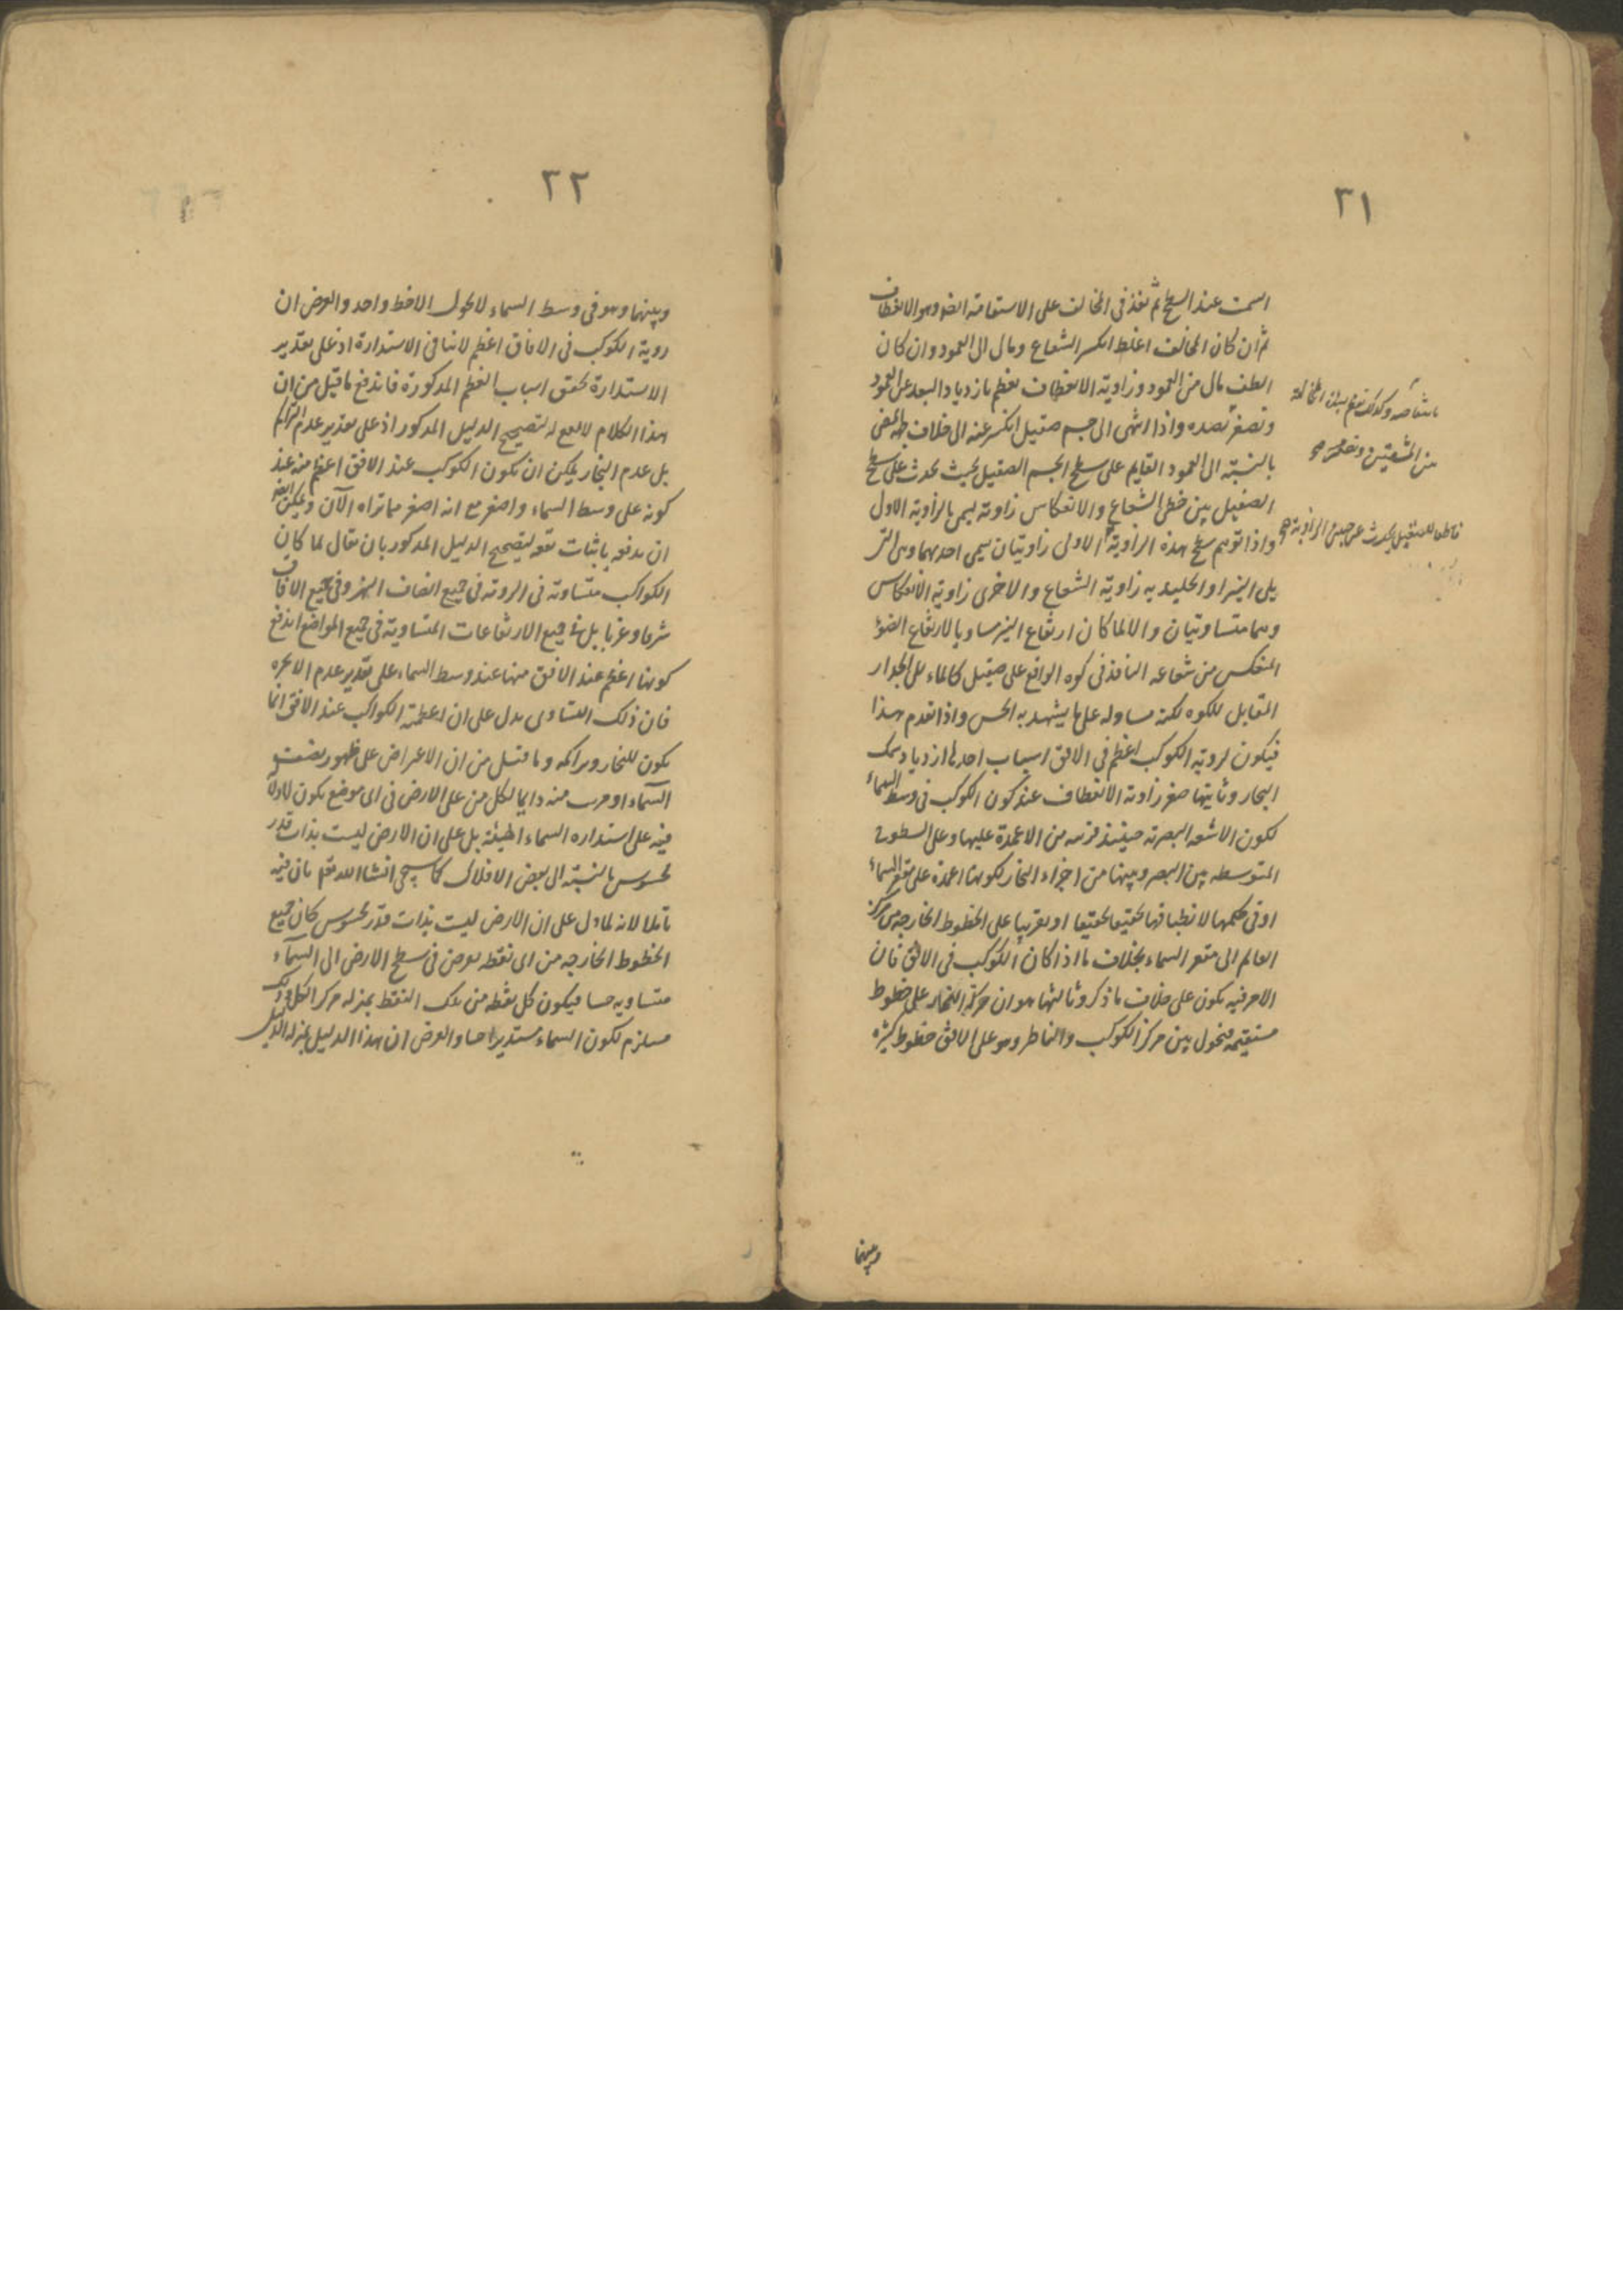 ٣١
السمت عند السطح ثم نفذ فى المخالف على الاستقامة ايضا وهو الانعطاف
ثم ان كان المخالف اغلظ انكسر الشعاع ومال الى العمود وان كان
الطف مال من العمود وزاوية الانعطاف تعظم بازدياد البعد عن العمود
وتصغر بضده واذا انتهى الى جسم صقيل انكسر عنه الى خلاف جهة
بالنسبة الى العمود القايم على سطح الجسم الصقيل بحيث يحدث على سطح
الصقيل بين خطى الشعاع والانعكاس زاوية يسمى بالزاوية الاولى
واذا توهم سطح هذه الزاوية الاولى زاويتان يسمى احديهما وهى التى
يلى النير او الجليديه زاوية الشعاع والاخرى زاوية الانعكاس
وهما متساويتان والا لما كان ارتفاع النير مساويا لارتفاع الضوء
المنعكس من شعاعه النافذ فى كوه الواقع على صقيل كالماء الى الجدار
المقابل للكوه لكنه مساو له على ما يشهد به الحس واذا تقدم هذا
فيكون لروية الكوكب اعظم فى الافق اسباب احدها ازدياد سمك
البخار وثانيها صغر زاوية الانعطاف عند كون الكوكب فى وسط السماء
لكون الاشعه المبصرته حينئذ قريبه من الاعمدة عليها وعلى السطوح
المتوسطه بين البصر وبينها من اجزاء البخار لكونها اعمدة على مقعر السماء
او فى حكمها لانطباقها تحقيقا او تقريبا على الخطوط الخارجه من مركز
العالم الى مقعر السماء بخلاف ما اذا كان الكوكب فى الافق فان
الامر فيه يكون على خلاف ما ذكر وثالثها هو ان حركة البخار على خطوط
مستقيمه فتحول بين مركز الكوكب والناظر وهو على الافق خطوط كثيره
من الشعتين
وبينهما
٣٢
وبينهما وهو فى وسط السماء لا يحول الا خط واحد والغرض ان
روية الكوكب فى الافاق اعظم لا ينافى الاستدارة اذ على تقدير
الاستدارة تحقق اسباب العظم المذكورة فاندفع ما قيل من ان
هذا الكلام لا يقع له لتصحيح الدليل المذكور اذ على تقدير عدم التراكم
بل عدم البخار يمكن ان يكون الكوكب عند الافق اعظم منه عند
كونه على وسط السماء واصغر مع انه اصغر مما تراه الآن ويمكن ايضا
ان يدفع باثبات لتصحيح الدليل المذكور بان يقال لما كان
الكواكب متساوية فى الروية فى جميع انصاف النهر وفى جميع الافاق
شرقا وغربا بل فى جميع الارتفاعات المتساوية فى جميع المواضع اندفع
كونها اعظم عند الافق منها عند وسط السماء على تقدير عدم الابخره
فان ذلك التساوى يدل على ان اعظمية الكواكب عند الافق انما
يكون للبخار وتراكمه وما قيل من ان الاعتراض على ظهور نصف
السماء او قريب منه دايما لكل من على الارض فى اى موضع يكون لا دلالة
فيه على استداره السماء الهيئة بل على ان الارض ليست بذات قدر
محسوس بالنسبة الى بعض الافلاك كما سيجى انشا الله تعالى بان فيه
تاملا لانه لما دل على ان الارض ليست بذات قدر محسوس كان جميع
الخطوط الخارجه من اى نقطه يفرض فى سطح الارض الى السماء
متساويه حسا فيكون كل نقطه من تلك النقط بمنزله مركز الكل وذلك
مستلزم لكون السماء مستديرا حسا والغرض ان هذا الدليل بمنزله الدليل